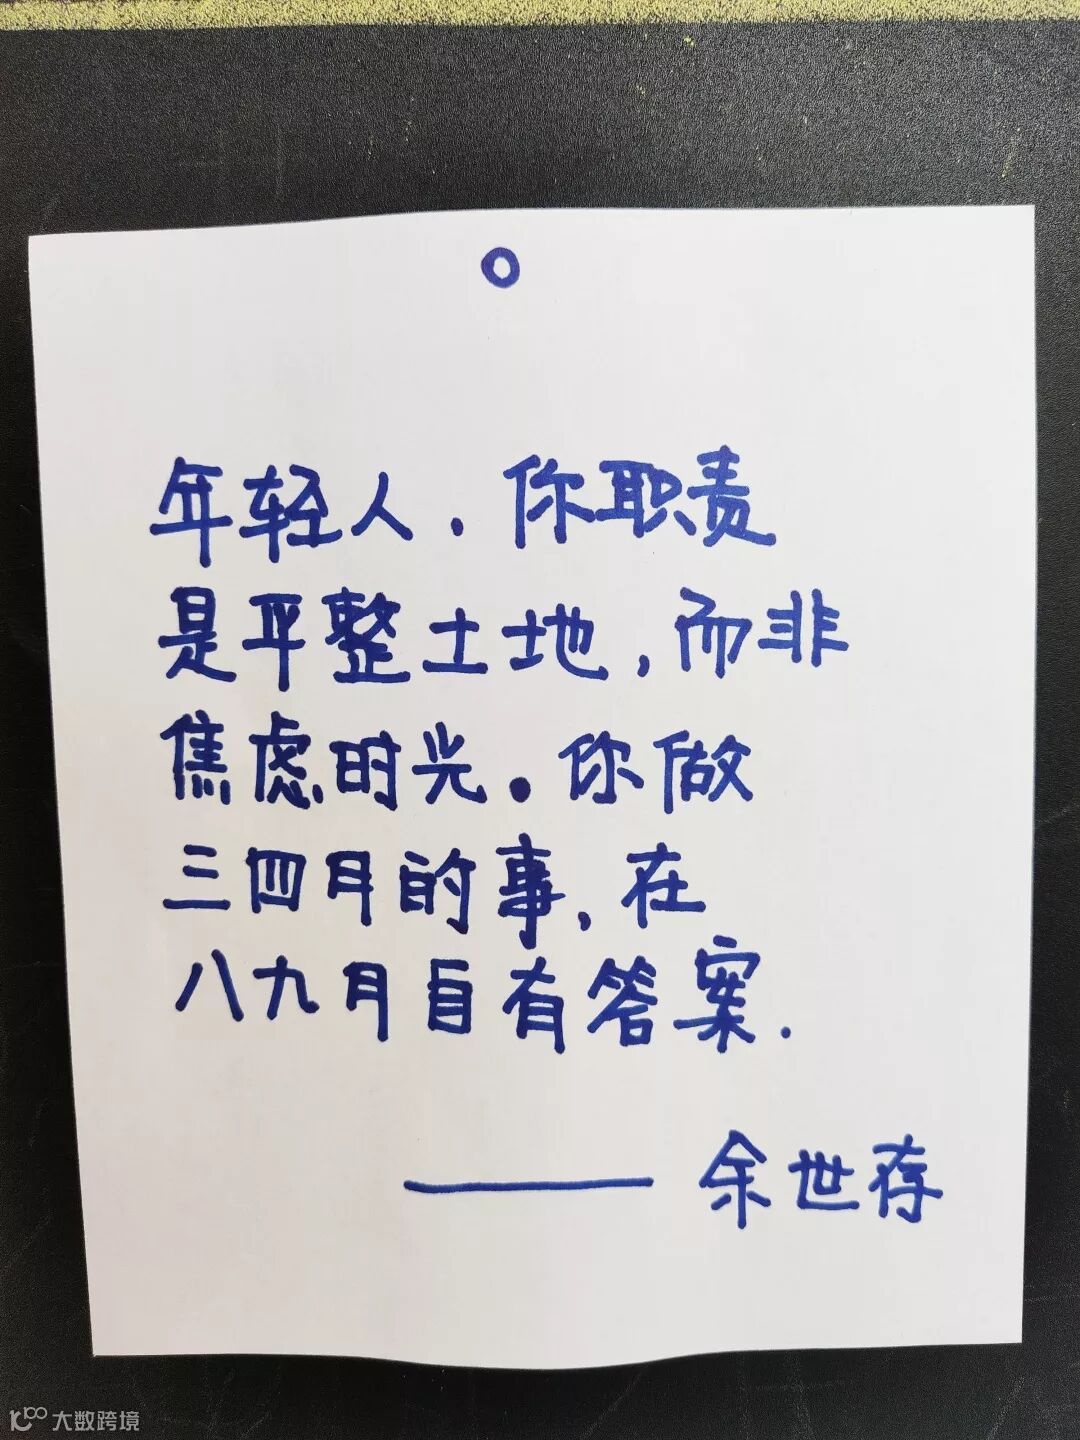 年轻人.你职责
是平整土地,而非
焦虑时光。你做
三四月的事,在
八九月自有答案.
——余世存
大数跨境